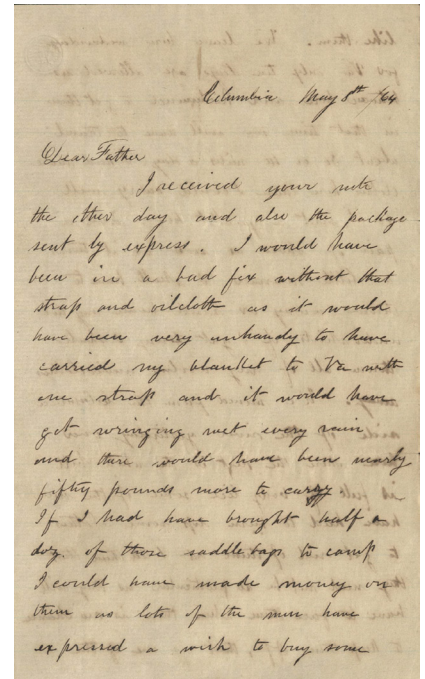 Columbia May 8th /64
Dear Father
I received your note
the other day and also the package
sent by express. I would have
been in a bad fix without that
strap and oilcloth as it would
have been very unhandy to have
carried my blanket to Va with
one strap and it would have
got wringing wet every rain
and there would have been nearly
fifty pounds more to carry
If I had have brought half a
doz. of those saddle bags to camp
I could have made money on
them as lots of the men have
expressed a wish to buy some